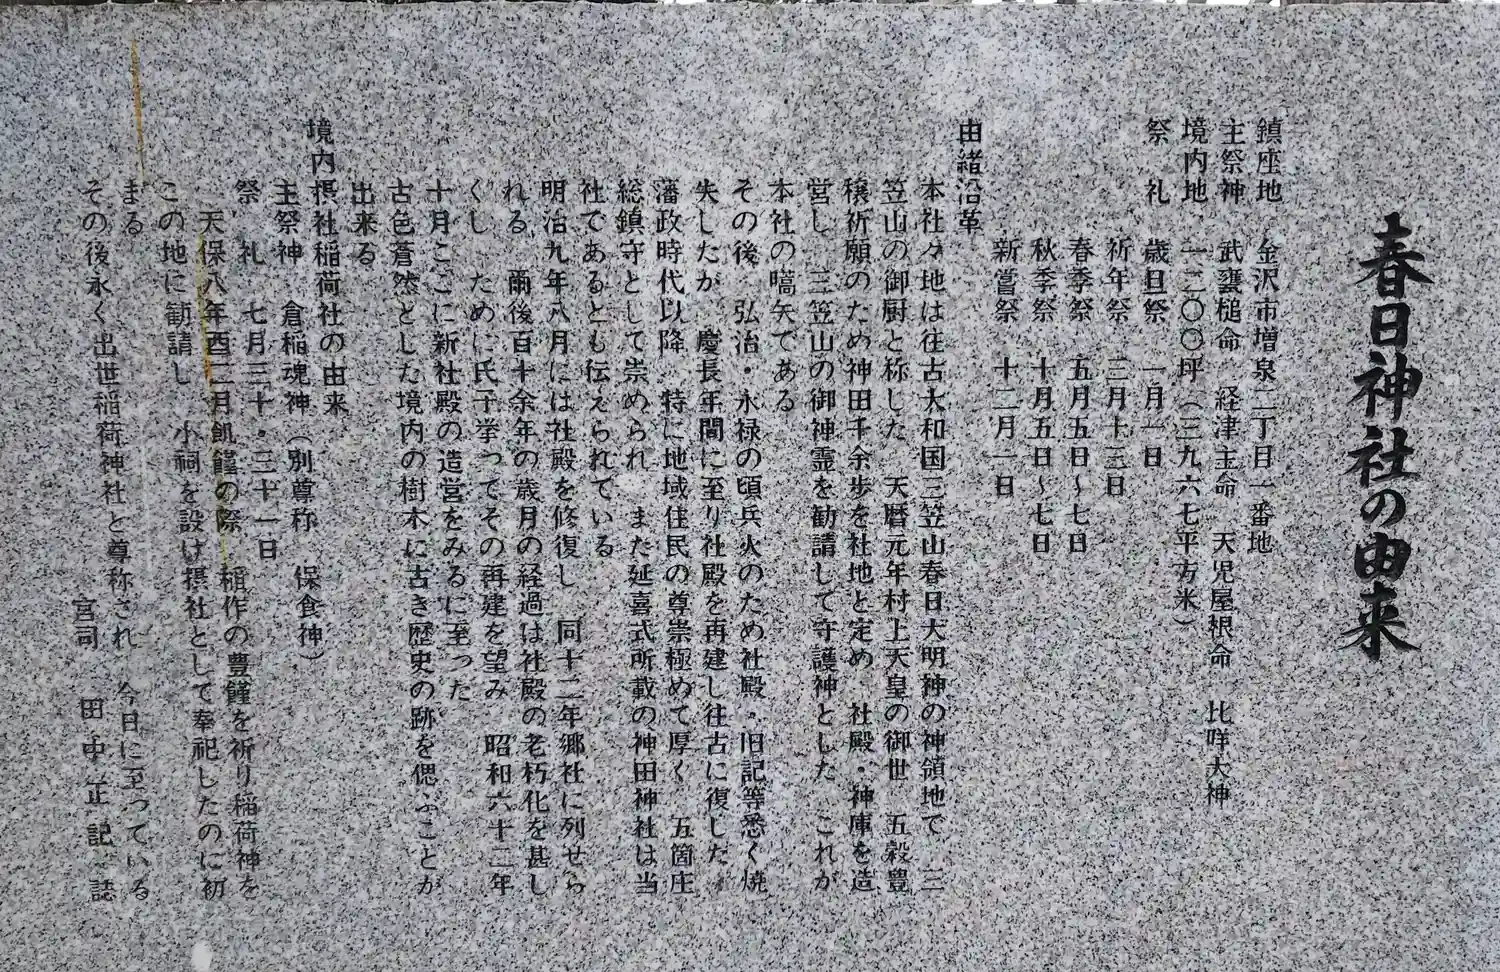 春日神社の由来
鎮座地 金沢市増泉二丁目一番地
主祭神 武甕槌命 経津主命 天児屋根命 比咩大神
境内地 一二〇〇坪(三九六七平方米)
祭礼 歳旦祭 一月一日
祈年祭 三月十三日
春季祭 五月五日~七日
秋季祭 十月五日~七日
新嘗祭 十二月一日
由緒沿革
本社々地は往古大和国三笠山春日大明神の神領地で 三
笠山の御厨と称した 天暦元年村上天皇の御世 五穀豊
穣祈願のため神田千余歩を社地と定め 社殿・神庫を造
営し 三笠山の御神霊を勧請して守護神とした これが
本社の嚆矢である
その後 弘治・永禄の頃兵火のため社殿・旧記等悉く焼
失したが 慶長年間に至り社殿を再建し往古に復した
藩政時代以降 特に地域住民の尊崇極めて厚く 五箇庄
総鎮守として崇められ また延喜式所載の神田神社は当
社であるとも伝えられている
明治九年八月には社殿を修復し 同十二年郷社に列せら
れる 爾後百十余年の歳月の経過は社殿の老朽化を甚し
くし ために氏子挙ってその再建を望み 昭和六十二年
十月ここに新社殿の造営をみるに至った
古色蒼然とした境内の樹木に古き歴史の跡を偲ぶことが
出来る
境内摂社稲荷社の由来
主祭神 倉稲魂神(別尊称 保食神)
祭礼 七月三十・三十一日
天保八年酉二月飢饉の際 稲作の豊饉を祈り稲荷神を
この地に勧請し 小祠を設け摂社として奉祀したのに初
まる
その後永く出世稲荷神社と尊称され 今日に至っている
宮司 田中正記 誌